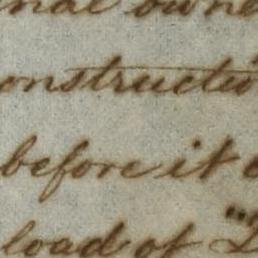 nal owne
onstructio
before it
load of "